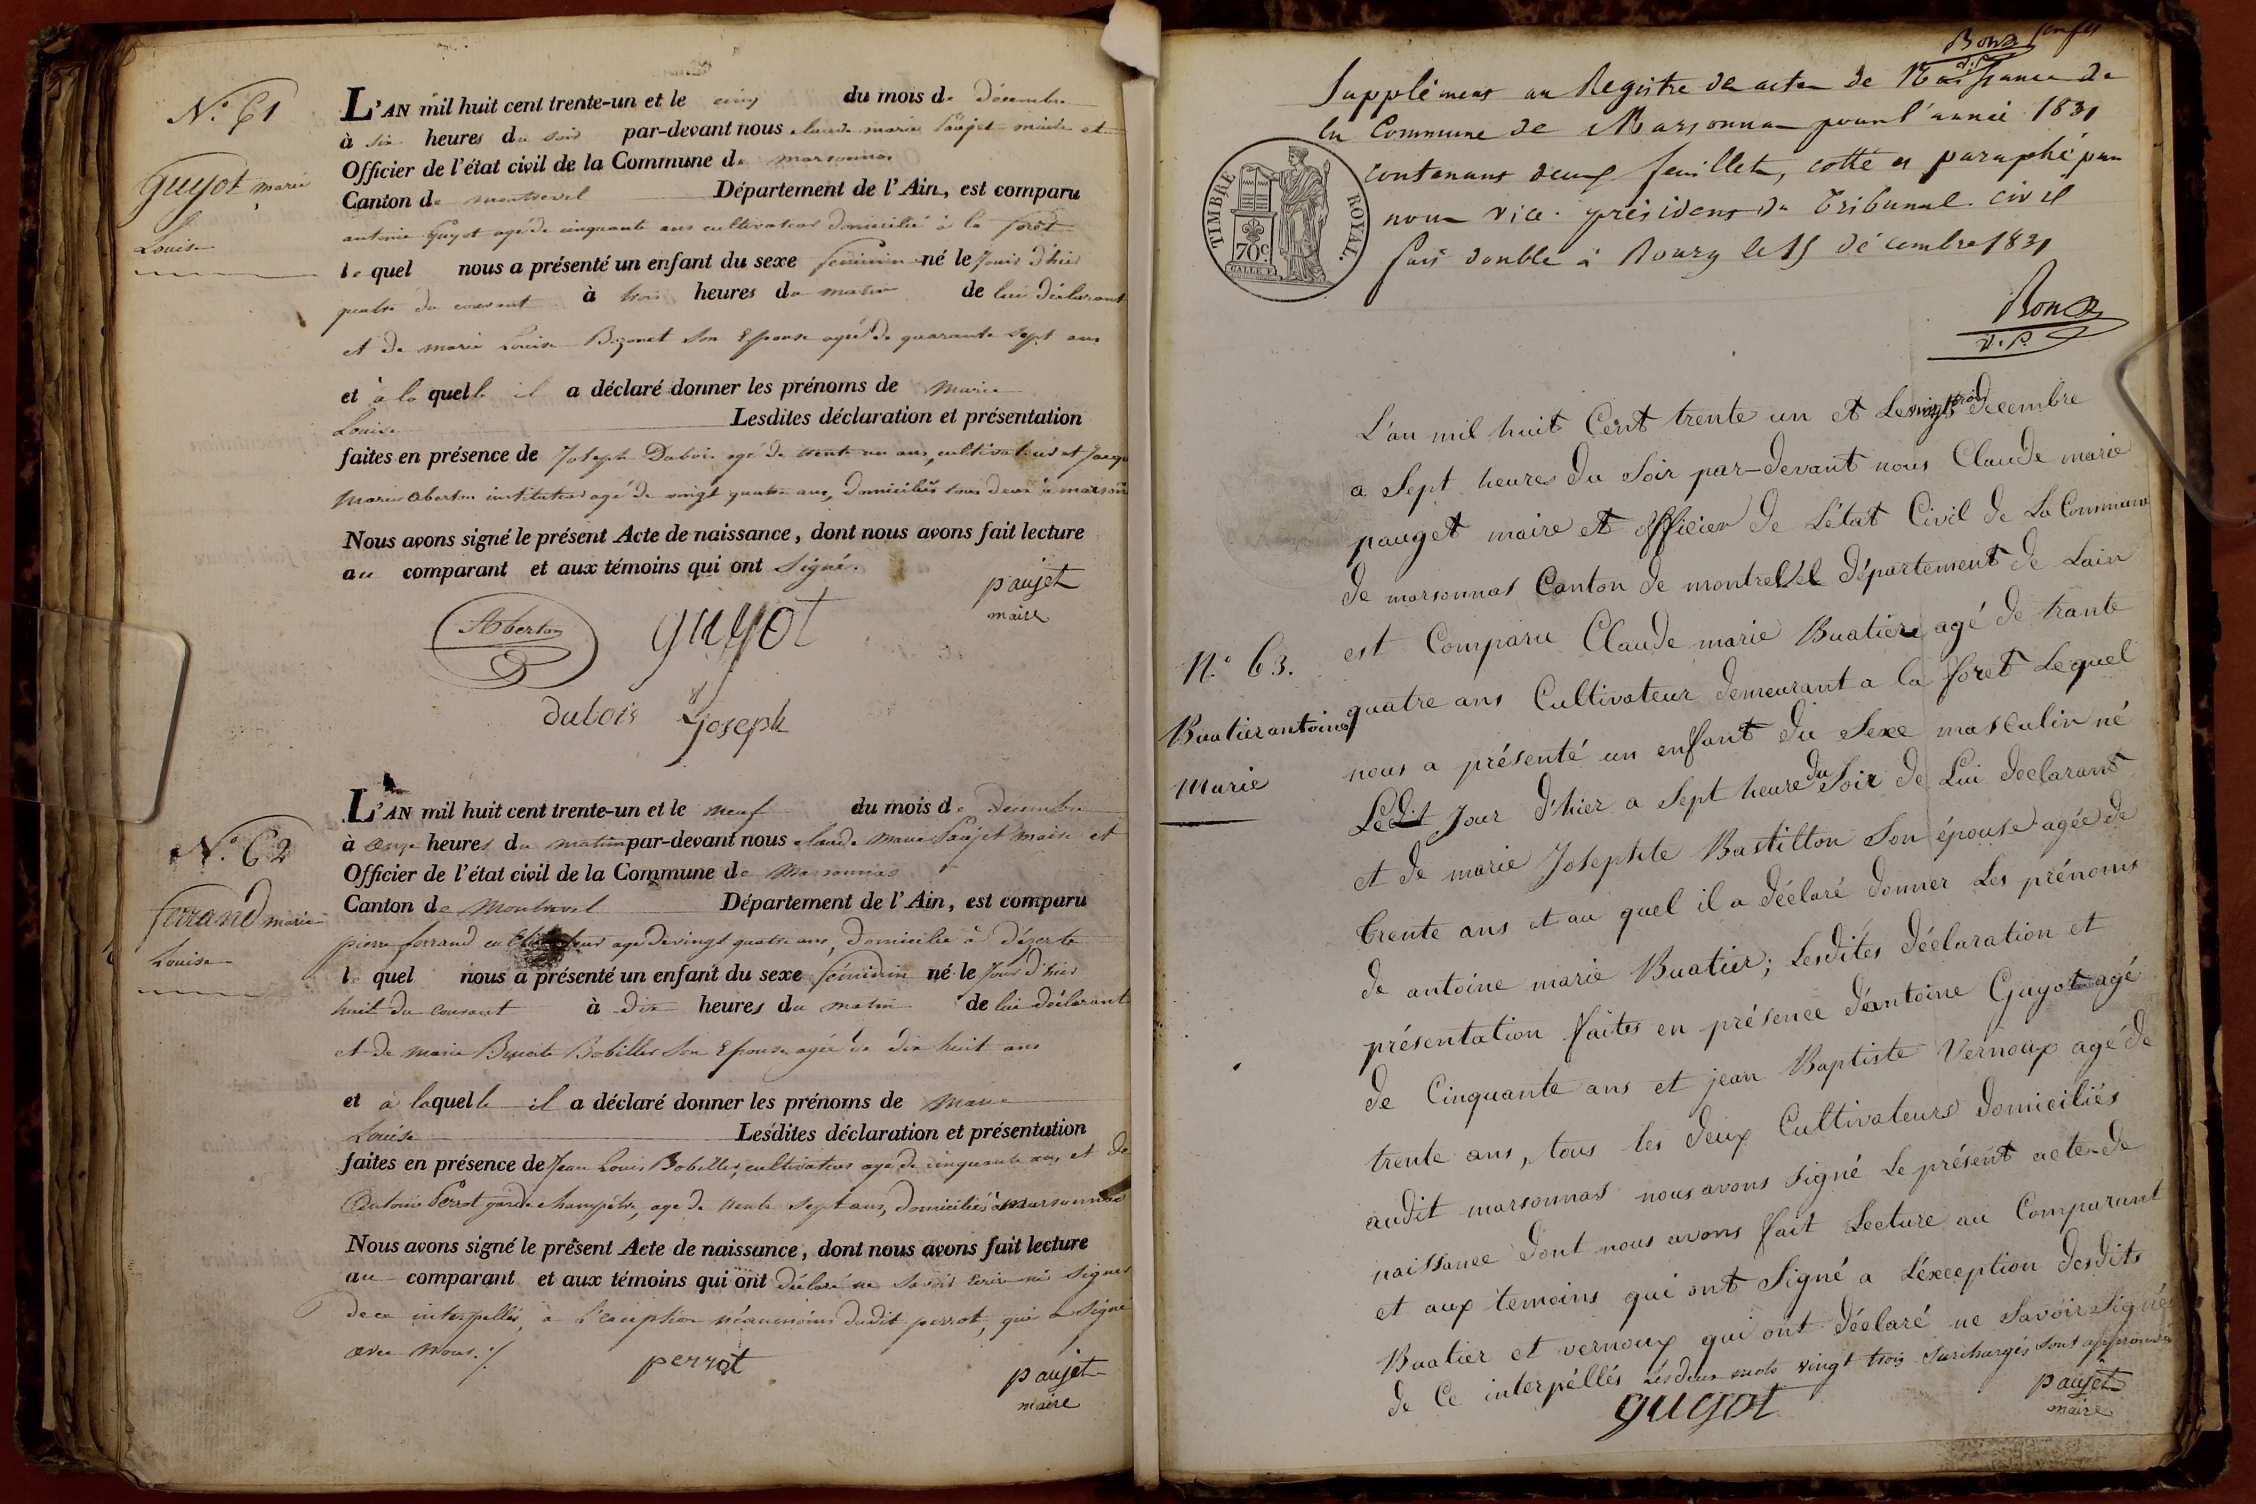 N.° 61
Guyot marie
Louise
L'AN mil huit cent trente-un et le cinq du mois de décembre
à six heures du soir par-devant nous claude marie paujet maire et
Officier de l'état civil de la Commune de marsonnas
Canton de montrevel Département de l'Ain, est comparu
antoine Guyot agé de cinquante ans cultivateur domicilié à la forêt
lequel nous a présenté un enfant du sexe feminin né le jour d'hier
quatre du courant à trois heures du matin de lui déclarant
et de marie Louise son Epouse agée de quarante sept ans
et à laquelle il a déclaré donner les prénoms de Marie
Louise Lesdites déclaration et présentation
faites en présence de Joseph Dubois agé de trente un ans, cultivateur et Jacqu
Marie Aberton instituteur agé de vingt quatre ans, domiciliés tous deux à marson
Nous avons signé le présent Acte de naissance, dont nous avons fait lecture
au comparant et aux témoins qui ont signé.
paujet
maire
Aberton
guyot
dubois joseph
N.° 62
ferrand marie
Louise
L'AN mil huit cent trente-un et le neuf du mois de décembre
à onze heures du matin par-devant nous claude Marie Paujet Maire et
Officier de l'état civil de la Commune de Marsonnas
Canton de Montrevel Département de l'Ain, est comparu
pierre ferrand agé de vingt quatre ans, domicilié à déserte
lequel nous a présenté un enfant du sexe féminin né le jour d'hier
huit du courant à dix heures du matin de lui déclarant
et de marie Benoite Bobillet son Epouse agée de dix huit ans
et à laquelle il a déclaré donner les prénoms de Marie
Louise Lesdites déclaration et présentation
faites en présence de Jean Louis Bobillet, cultivateur agé de cinquante ans et de
Antoine Perrot garde champêtre, agé de trente sept ans, domiciliés à marsonnas
Nous avons signé le présent Acte de naissance, dont nous avons fait lecture
au comparant et aux témoins qui ont déclaré ne savoir ecrire ni signer
de ce interpellés, à l'exception néanmoins dudit perrot, qui a signé
avec nous ./.
perrot
paujet
maire
Supplément au Registre des actes de Naissance de
la Commune de Marsonnas pour l'année 1831
contenant deux feuillets, cotté et paraphé par
nous vice-président du Tribunal civil
fait double à Bourg le 15 décembre 1831
V.P.
TIMBRE ROYAL.
70c
L'an mil huit Cent trente un et Le vingt trois decembre
a Sept heures du Soir par-devant nous Claude marie
pauget maire et officier de L'état Civil de La Commune
de marsonnas Canton de montrevel département de Lain
est Comparu Claude marie Buatier agé de trante
quatre ans Cultivateur demeurant a la foret Lequel
nous a présenté un enffant du Sexe masculin né
Ledit Jour d'hier a Sept heure du Soir de Lui declarant
et de marie Josephte Bastillon Son épouse agée de
trente ans et au quel il a déclaré donner Les prénoms
de antoine marie Buatier; Lesdites déclaration et
présentation faites en présence d'antoine Guyot agé
de Cinquante ans et jean Baptiste Vernoux agé de
trente ans, tous les deux Cultivateurs domiciliés
audit marsonnas nous avons signé Le présent acte de
naissance dont nous avons fait Lecture au Comparant
et aux temoins qui ont Signé a L'éxception desdits
Buatier et vernoux qui ont déclaré ne Savoir Signer
de Ce interpéllés Les deux mots vingt trois Surchargés sont approuvés
N.° 63.
Buatier antoine
marie
guyot
paujet
maire